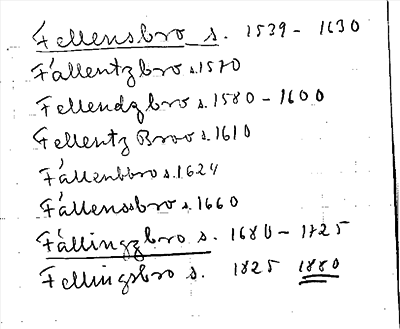 Fellensbro s. 1539 - 1630
Fállentzbro s. 1570
Fellendzbro s. 1580 - 1600
Fellentz Broo s. 1610
Fállenbbro s. 1624
Fállensbro s. 1660
Fállingzbro s. 1680 - 1725
Fellingsbro s. 1825 1880